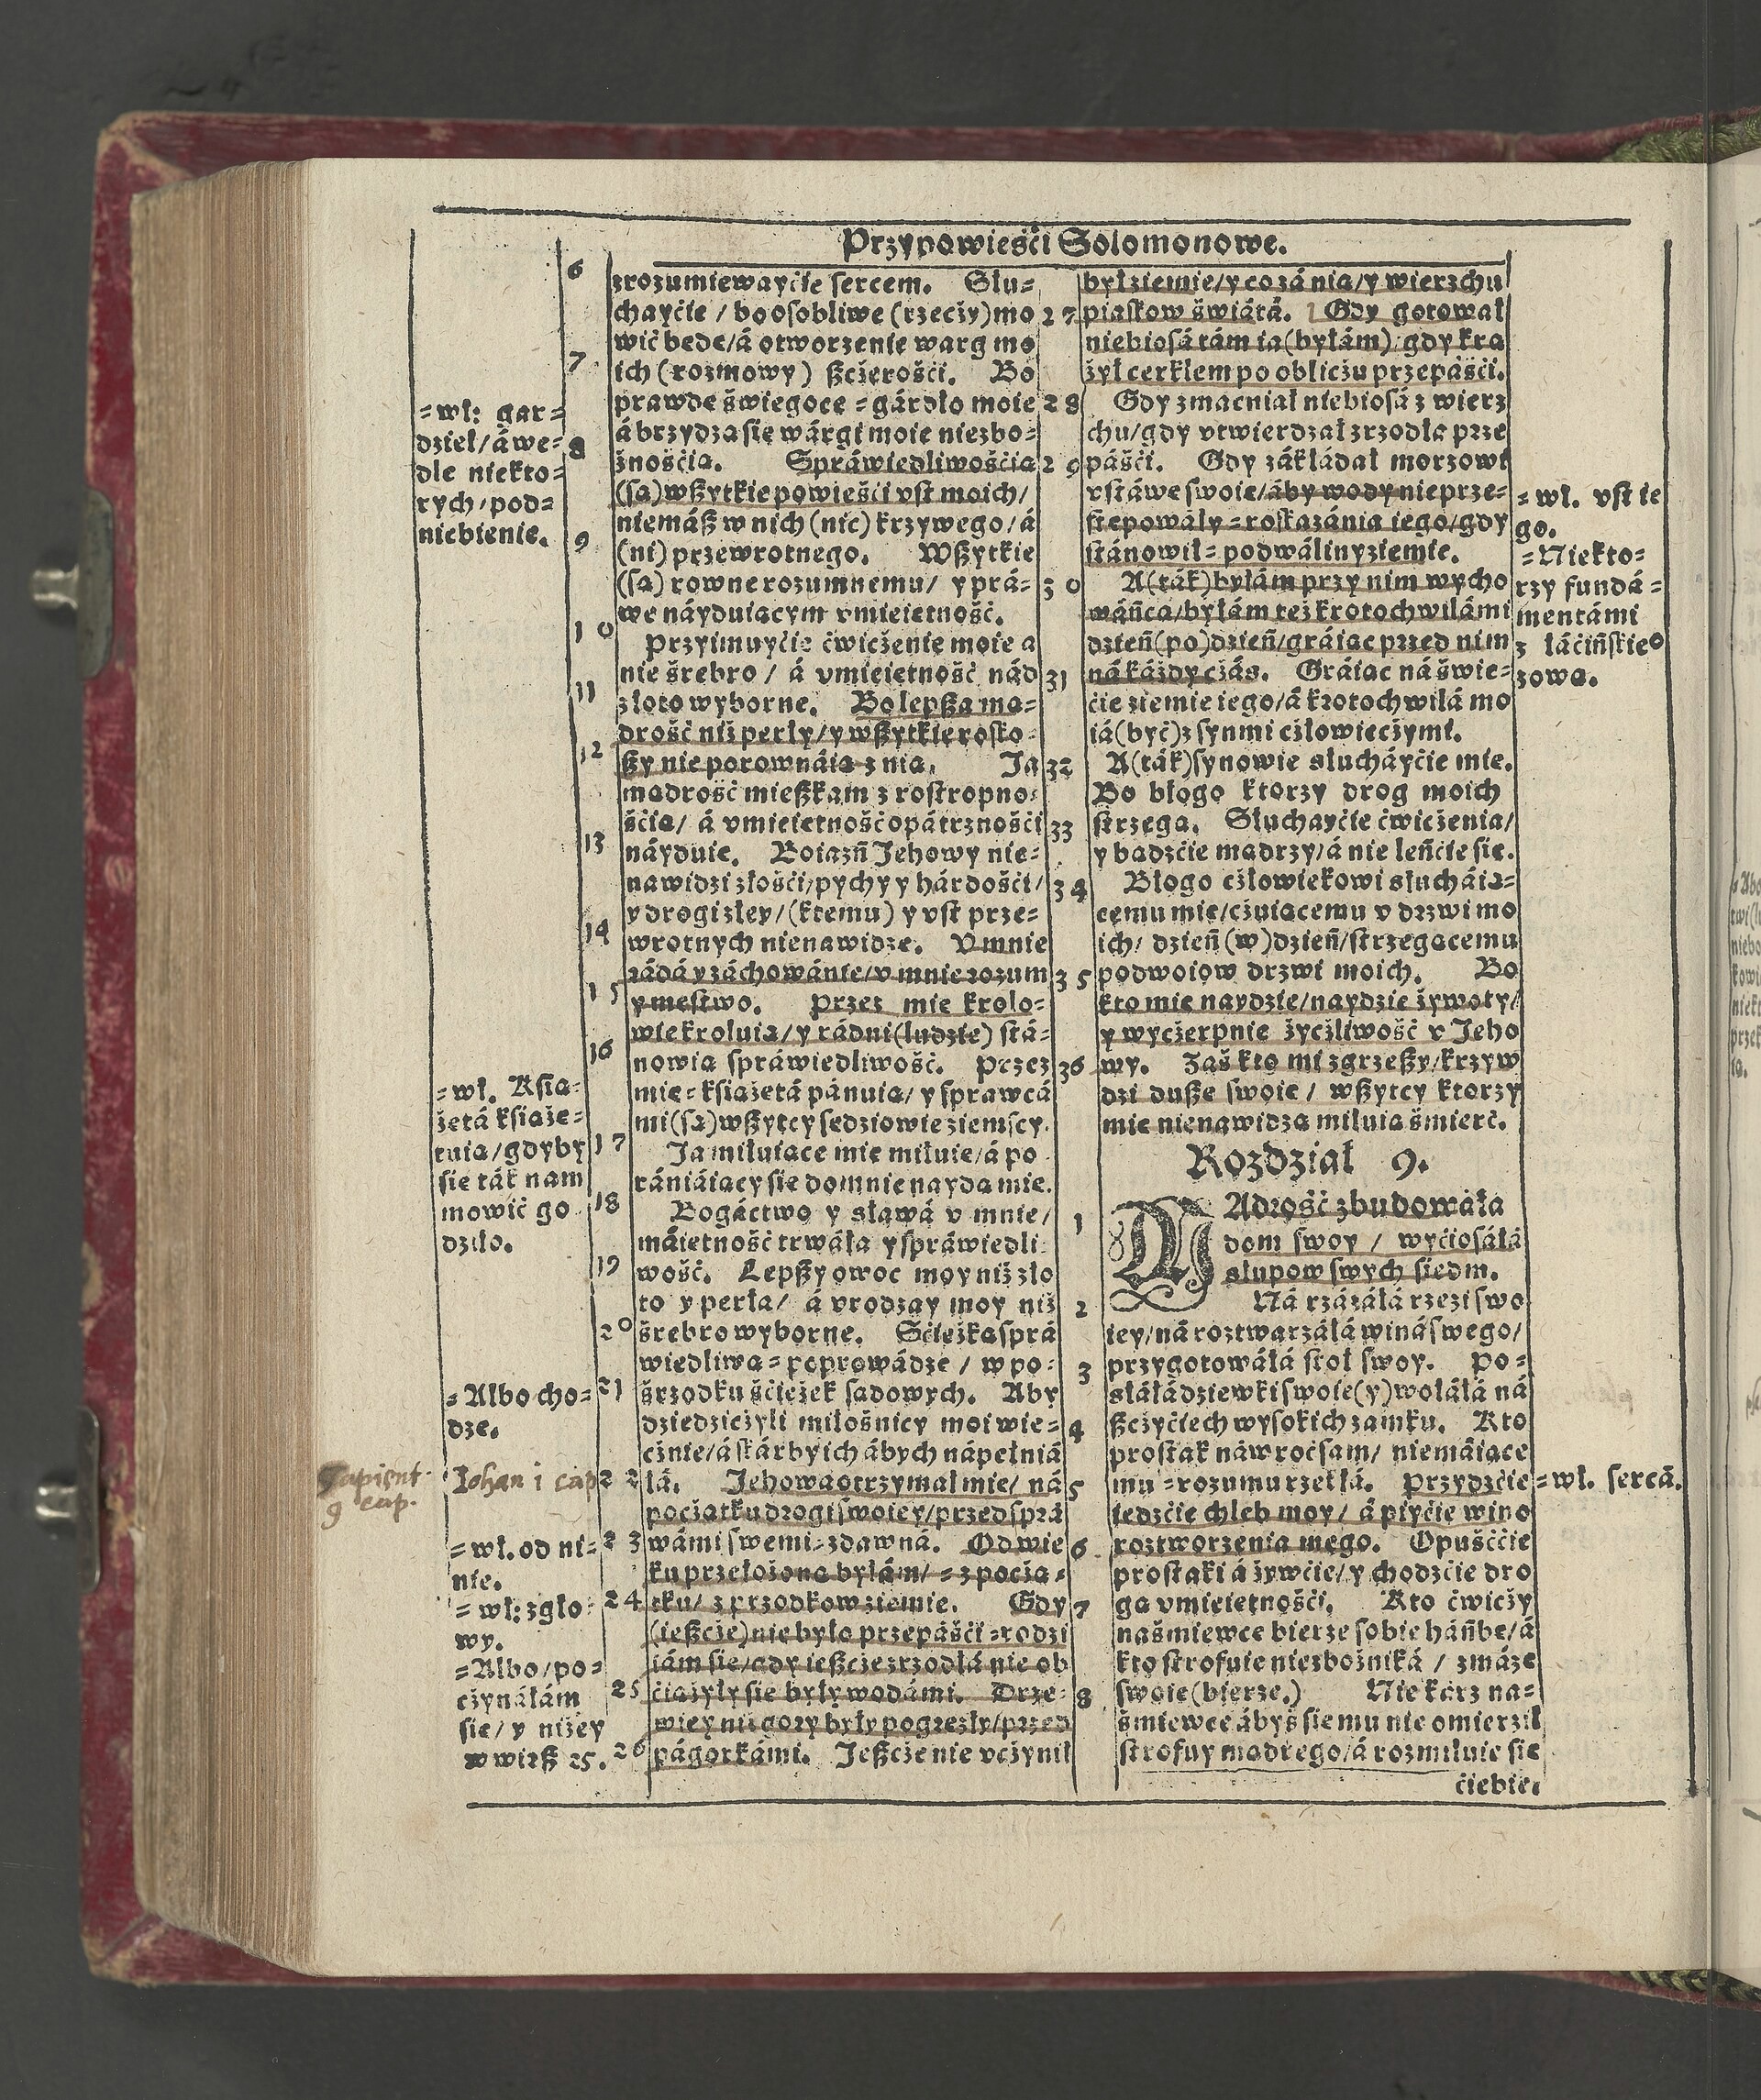 Przypowieśći Solomonowe.
6
zrozumiewayćie sercem. Słu=
chayćie / bo osobliwe (rzeczy) mo
wić bede/á otworzenie warg mo
7
ich (rozmowy) sczerośći. Bo
prawde świegoce = gárdło moie
á brzydza się wárgi moie niezbo=
8
żnośćia. Spráwiedliwośćia
(sa) wszytkie powieśći vst moich/
niemász w nich (nic) krzywego/á
9
(ni) przewrotnego. Wszytkie
(sa) rowne rozumnemu/ y prá=
we náyduiacym vmieietność.
10
Przyimuyćie ćwiczenie moie a
nie śrebro / á vmieietność nád
11
złoto wyborne. Bo lepsza ma=
drość niż perły/y wszytkie rosko=
12
szy nie porownáia z nia. Ja
madrość mieszkam z rostropno=
śćia/ á vmieietność opátrznośći
13
náyduie. Boiazń Jehowy nie=
nawidzi złośći/pychy y hárdośći/
y drogi złey/(k temu) y vst prze=
14
wrotnych nienawidze. V mnie
rádá y záchowánie/v mnie rozum
15
y mestwo. Przez mie krolo=
wie kroluia/y rádni (ludzie) stá=
16
nowia spráwiedliwość. Przez
mie = ksiażetá pánuia/ y sprawcá
mi (sa) wszytcy sedziowie ziemscy.
17
Ja miłuiace mie miłuie/á po
rániáiacy sie do mnie nayda mie.
18
Bogáctwo y sławá v mnie/
máietność trwáła y spráwiedli=
19
wość. Lepszy owoc moy niż zło
to y perła/ á vrodzay moy niż
20
śrebro wyborne. Śćieżka sprá
wiedliwa = poprowádze / w po=
21
śrzodku śćieżek sadowych. Aby
dziedziczyli miłośnicy moi wie=
cznie/á skárby ich ábych nápełniá
22
łá. Jehowa otrzymał mie/ ná
początku drogi swoiey/przed sprá
23
wámi swemi = zdawná. Od wie
ku przełożona byłám/ = z pocża=
24
tku/ z przodkow ziemie. Gdy
(ieszcze) nie było przepáśći = rodzi
iám sie/gdy ieszcze zrzodłá nie ob
25
ćiażyły sie były wodámi. Drze=
wiey niż gory były pogrezły/przed
26
págorkámi. Jeszcze nie vczynił
=wł: gar=
dziel/á we=
dle niekto=
rych/pod=
niebienie.
=wł. Ksia=
żetá ksiaże=
tuia/gdyby
sie ták nam
mowić go
dziło.
=Albo cho=
dze.
Sapient.
9 cap.
Johan 1 cap
=wł. od ni=
nie.
=wł: z gło=
wy.
=Albo/po=
czynáłám
sie/ y niżey
w wirsz 25.
był ziemie/y co zá nia/y wierzchu
27
piaskow świátá. Gdy gotował
niebiosá tám ia (byłám) gdy kra
żył cerklem po obliczu przepáśći.
28
Gdy zmacniał niebiosá z wierz
chu/gdy vtwierdzał zrzodła prze
29
páśći. Gdy zákłádał morzowi
vstáwe swoie/áby wody nie prze=
stepowáły = roskazánia iego/gdy
stánowił = podwáliny ziemie.
30
A (ták) byłám przy nim wycho
wáńca/byłám też krotochwilámi
dzień (po) dzień/gráiac przed nim
31
ná káżdy czás. Gráiac ná świe=
ćie ziemie iego/á krotochwilá mo
iá (być) z synmi człowieczymi.
32
A (ták) synowie słucháyćie mie.
Bo błogo ktorzy drog moich
33
strzega. Słuchayćie ćwiczenia/
y badzćie madrzy/á nie leńćie sie.
34
Błogo człowiekowi słucháia=
cemu mie/czuiacemu v drzwi mo
ich/ dzień (w) dzień/strzegacemu
35
podwoiow drzwi moich. Bo
kto mie naydzie/naydzie żywoty/
y wyczerpnie życzliwość v Jeho
36
wy. Záś kto mi zgrzeszy/krzyw
dzi dusze swoie / wszytcy ktorzy
mie nienawidza miłuia śmierć.
Rozdział 9.
1
MAdrość zbudowáła
dom swoy / wyćiosáłá
słupow swych siedm.
2
Ná rzázáłá rzezi swo
iey/ná roztwarzáłá winá swego/
3
przygotowáłá stoł swoy. Po=
słáłá dziewki swoie (y) wołáłá ná
4
szczyćiech wysokich zamku. Kto
prostak náwroć sam/ niemáiace
5
mu = rozumu rzekłá. Przydzćie
iedzćie chleb moy/ á piyćie wino
6
roztworzenia mego. Opuśććie
prostaki á żywćie/y chodzćie dro
7
ga vmieietnośći. Kto ćwiczy
naśmiewce bierze sobie háńbe/á
kto strofuie niezbożniká / zmáze
8
swoie (bierze.) Nie karz na=
śmiewce ábyś sie mu nie omierził
strofuy madrego/á rozmiłuie sie
ćiebie.
=wł. vst ie
go.
=Niekto=
rzy fundá=
mentámi
z łáćińskieº
zowa.
=wł. sercá.